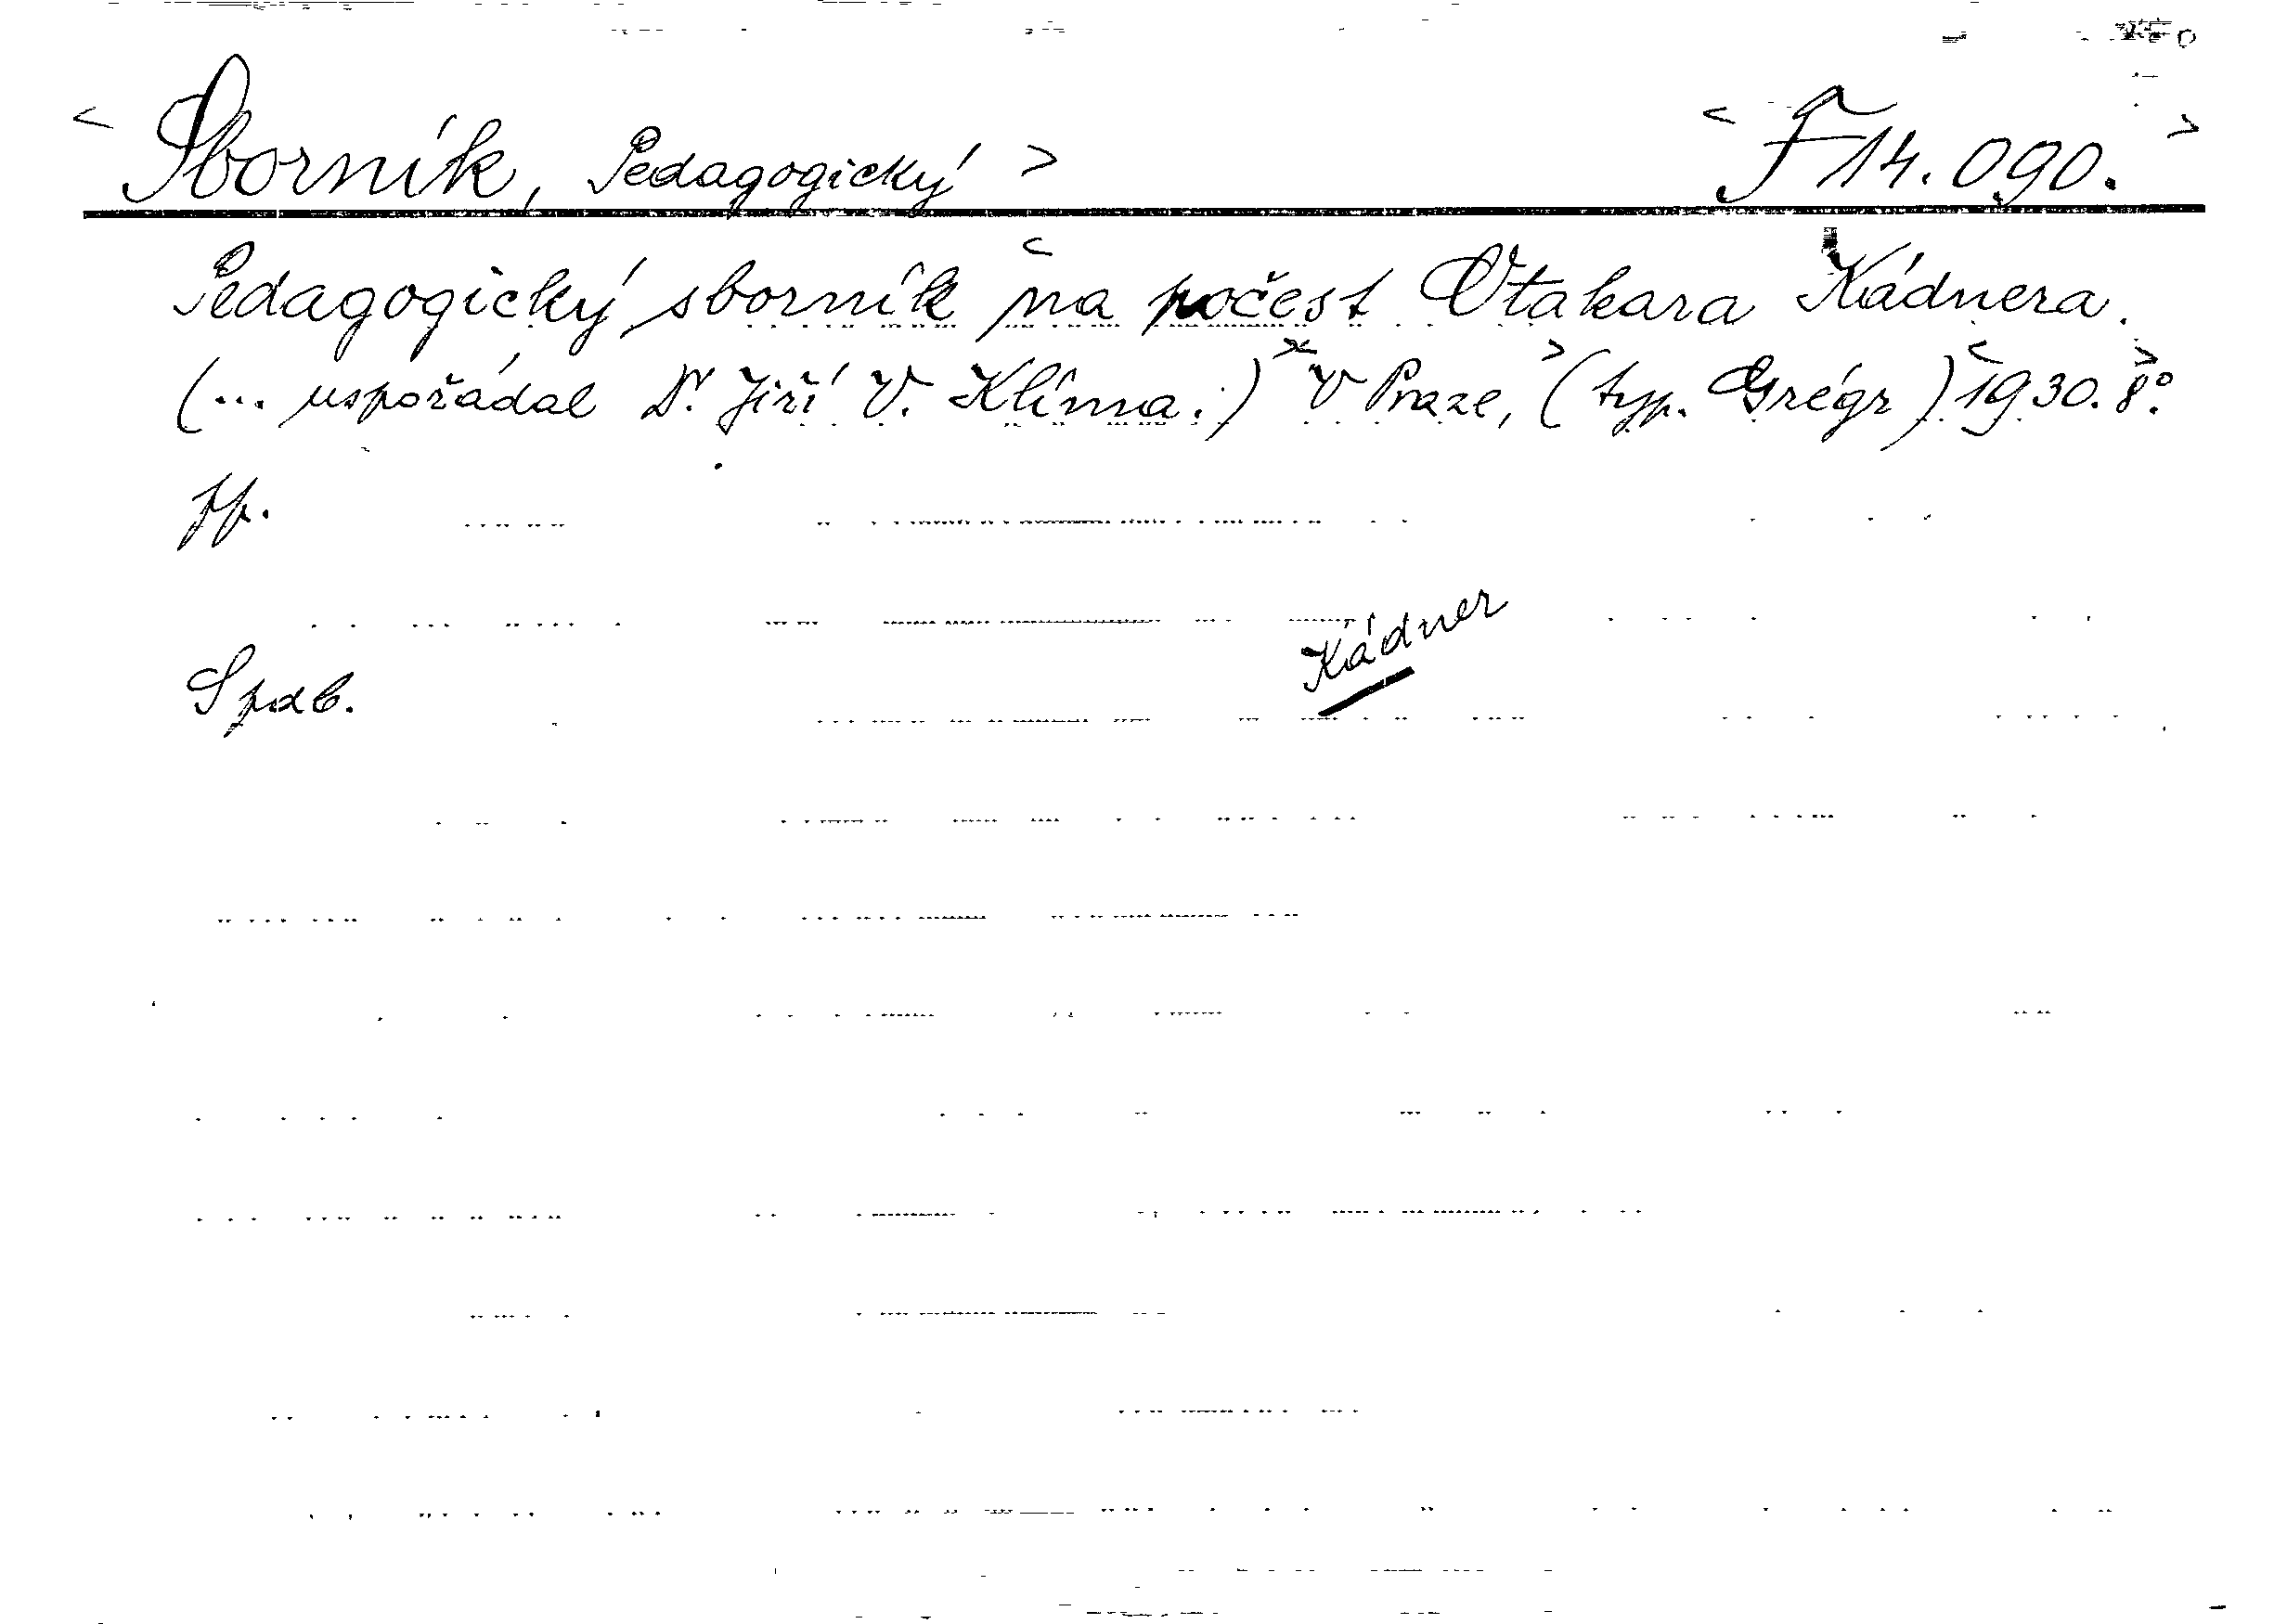 < Sborník, Pedagogický > < F 14.090. >
Pedagogický sborník na počest Otakara Kádnera.
(... uspořádal Dr. Jiří V. Klíma.) V Praze, (typ. Grégr) 1930. 8°.
pp.
Kádner
Spdb.